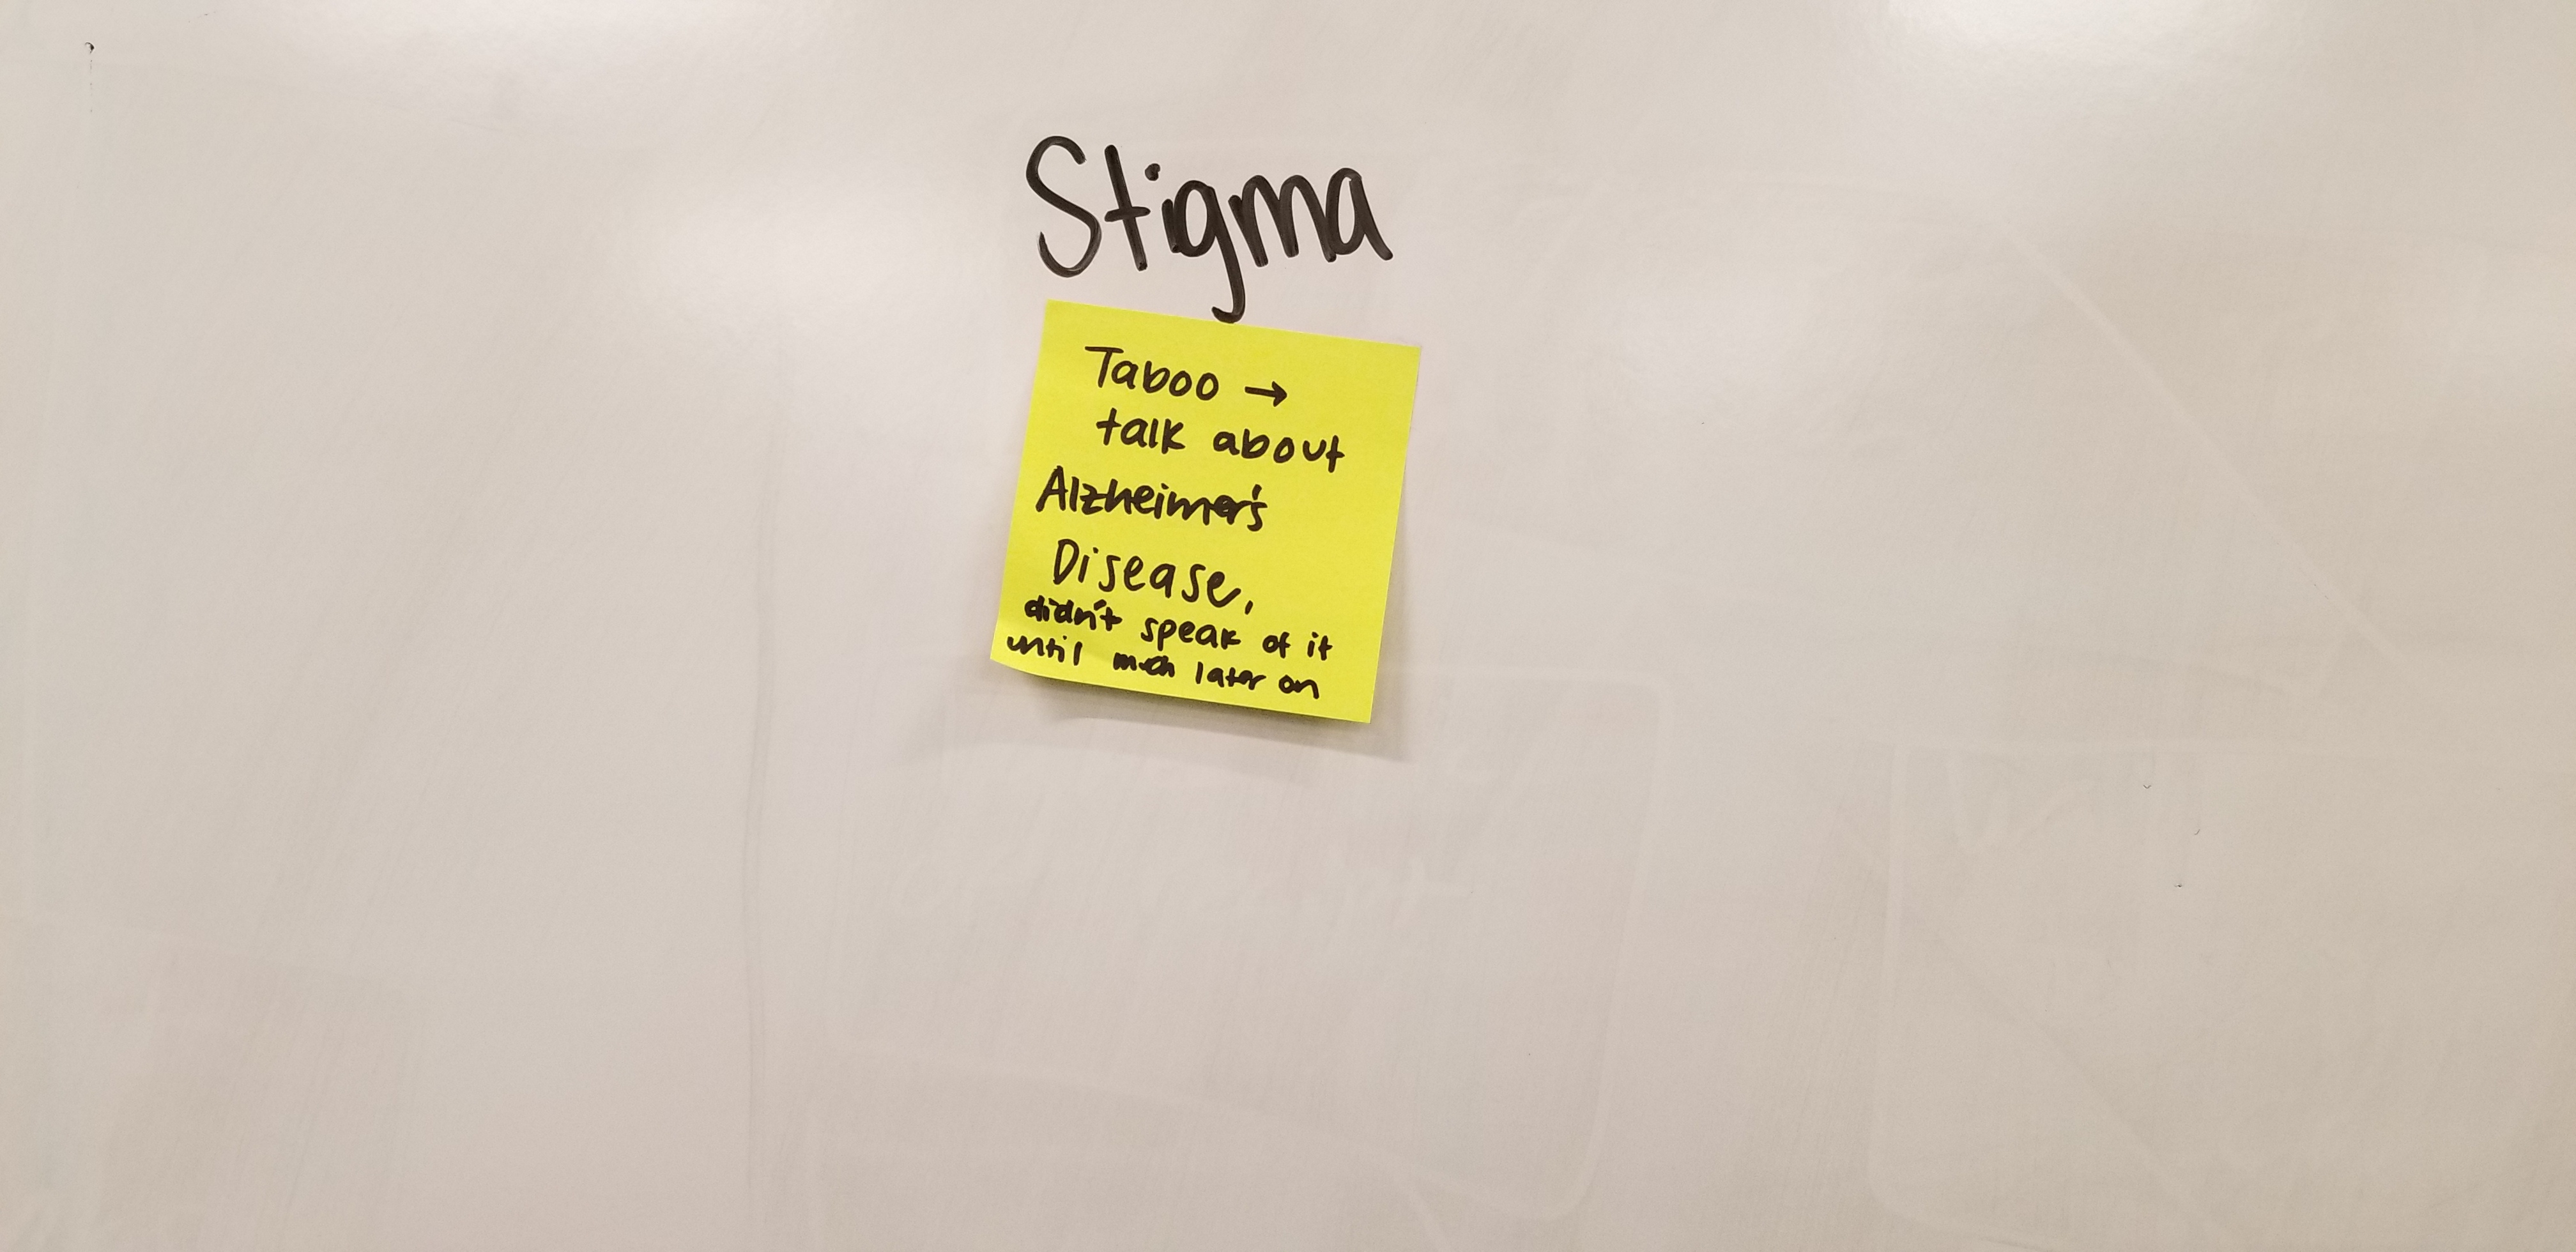 Stigma
Taboo →
talk about
Alzheimer's
Disease,
didn't speak of it
until much later on